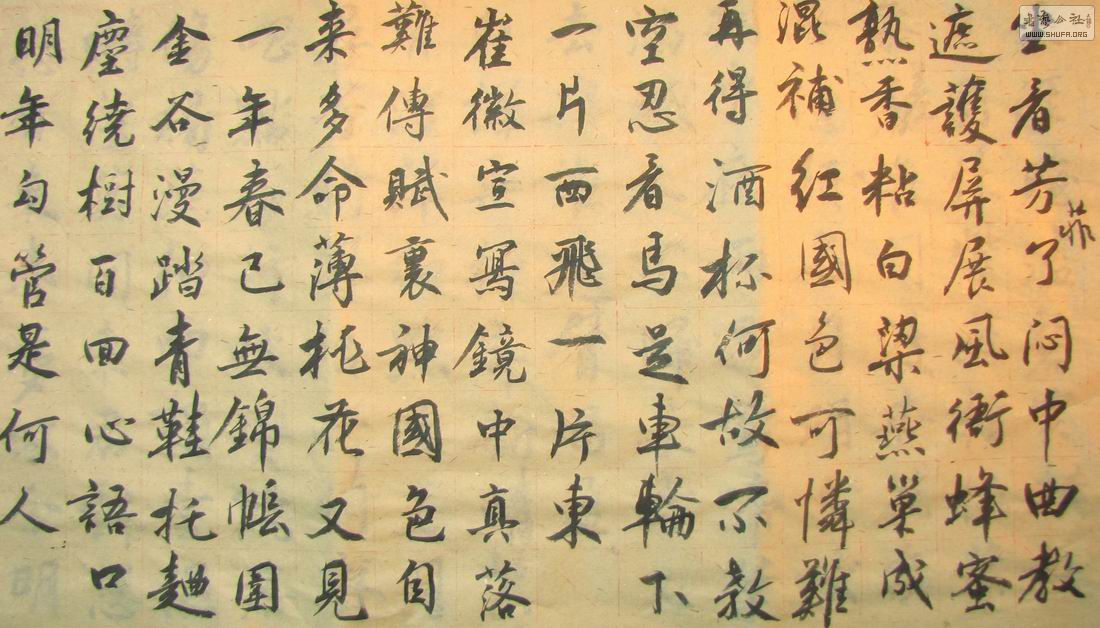 坐看芳菲了闷中曲教
遮護屏展風衙蜂蜜
熟香粘白梁燕巢成
混補紅國色可憐難
再得酒杯何故不教
空忍看馬足車輪下
一片西飛一片東
崔徽宣寫鏡中真落
難傳賦裏神國色自
来多命薄桃花又見
一年春已無錦帳圍
金谷漫踏青鞋托麯
塵繞樹百回心語口
明年勾管是何人
WWW.SHUFA.ORG